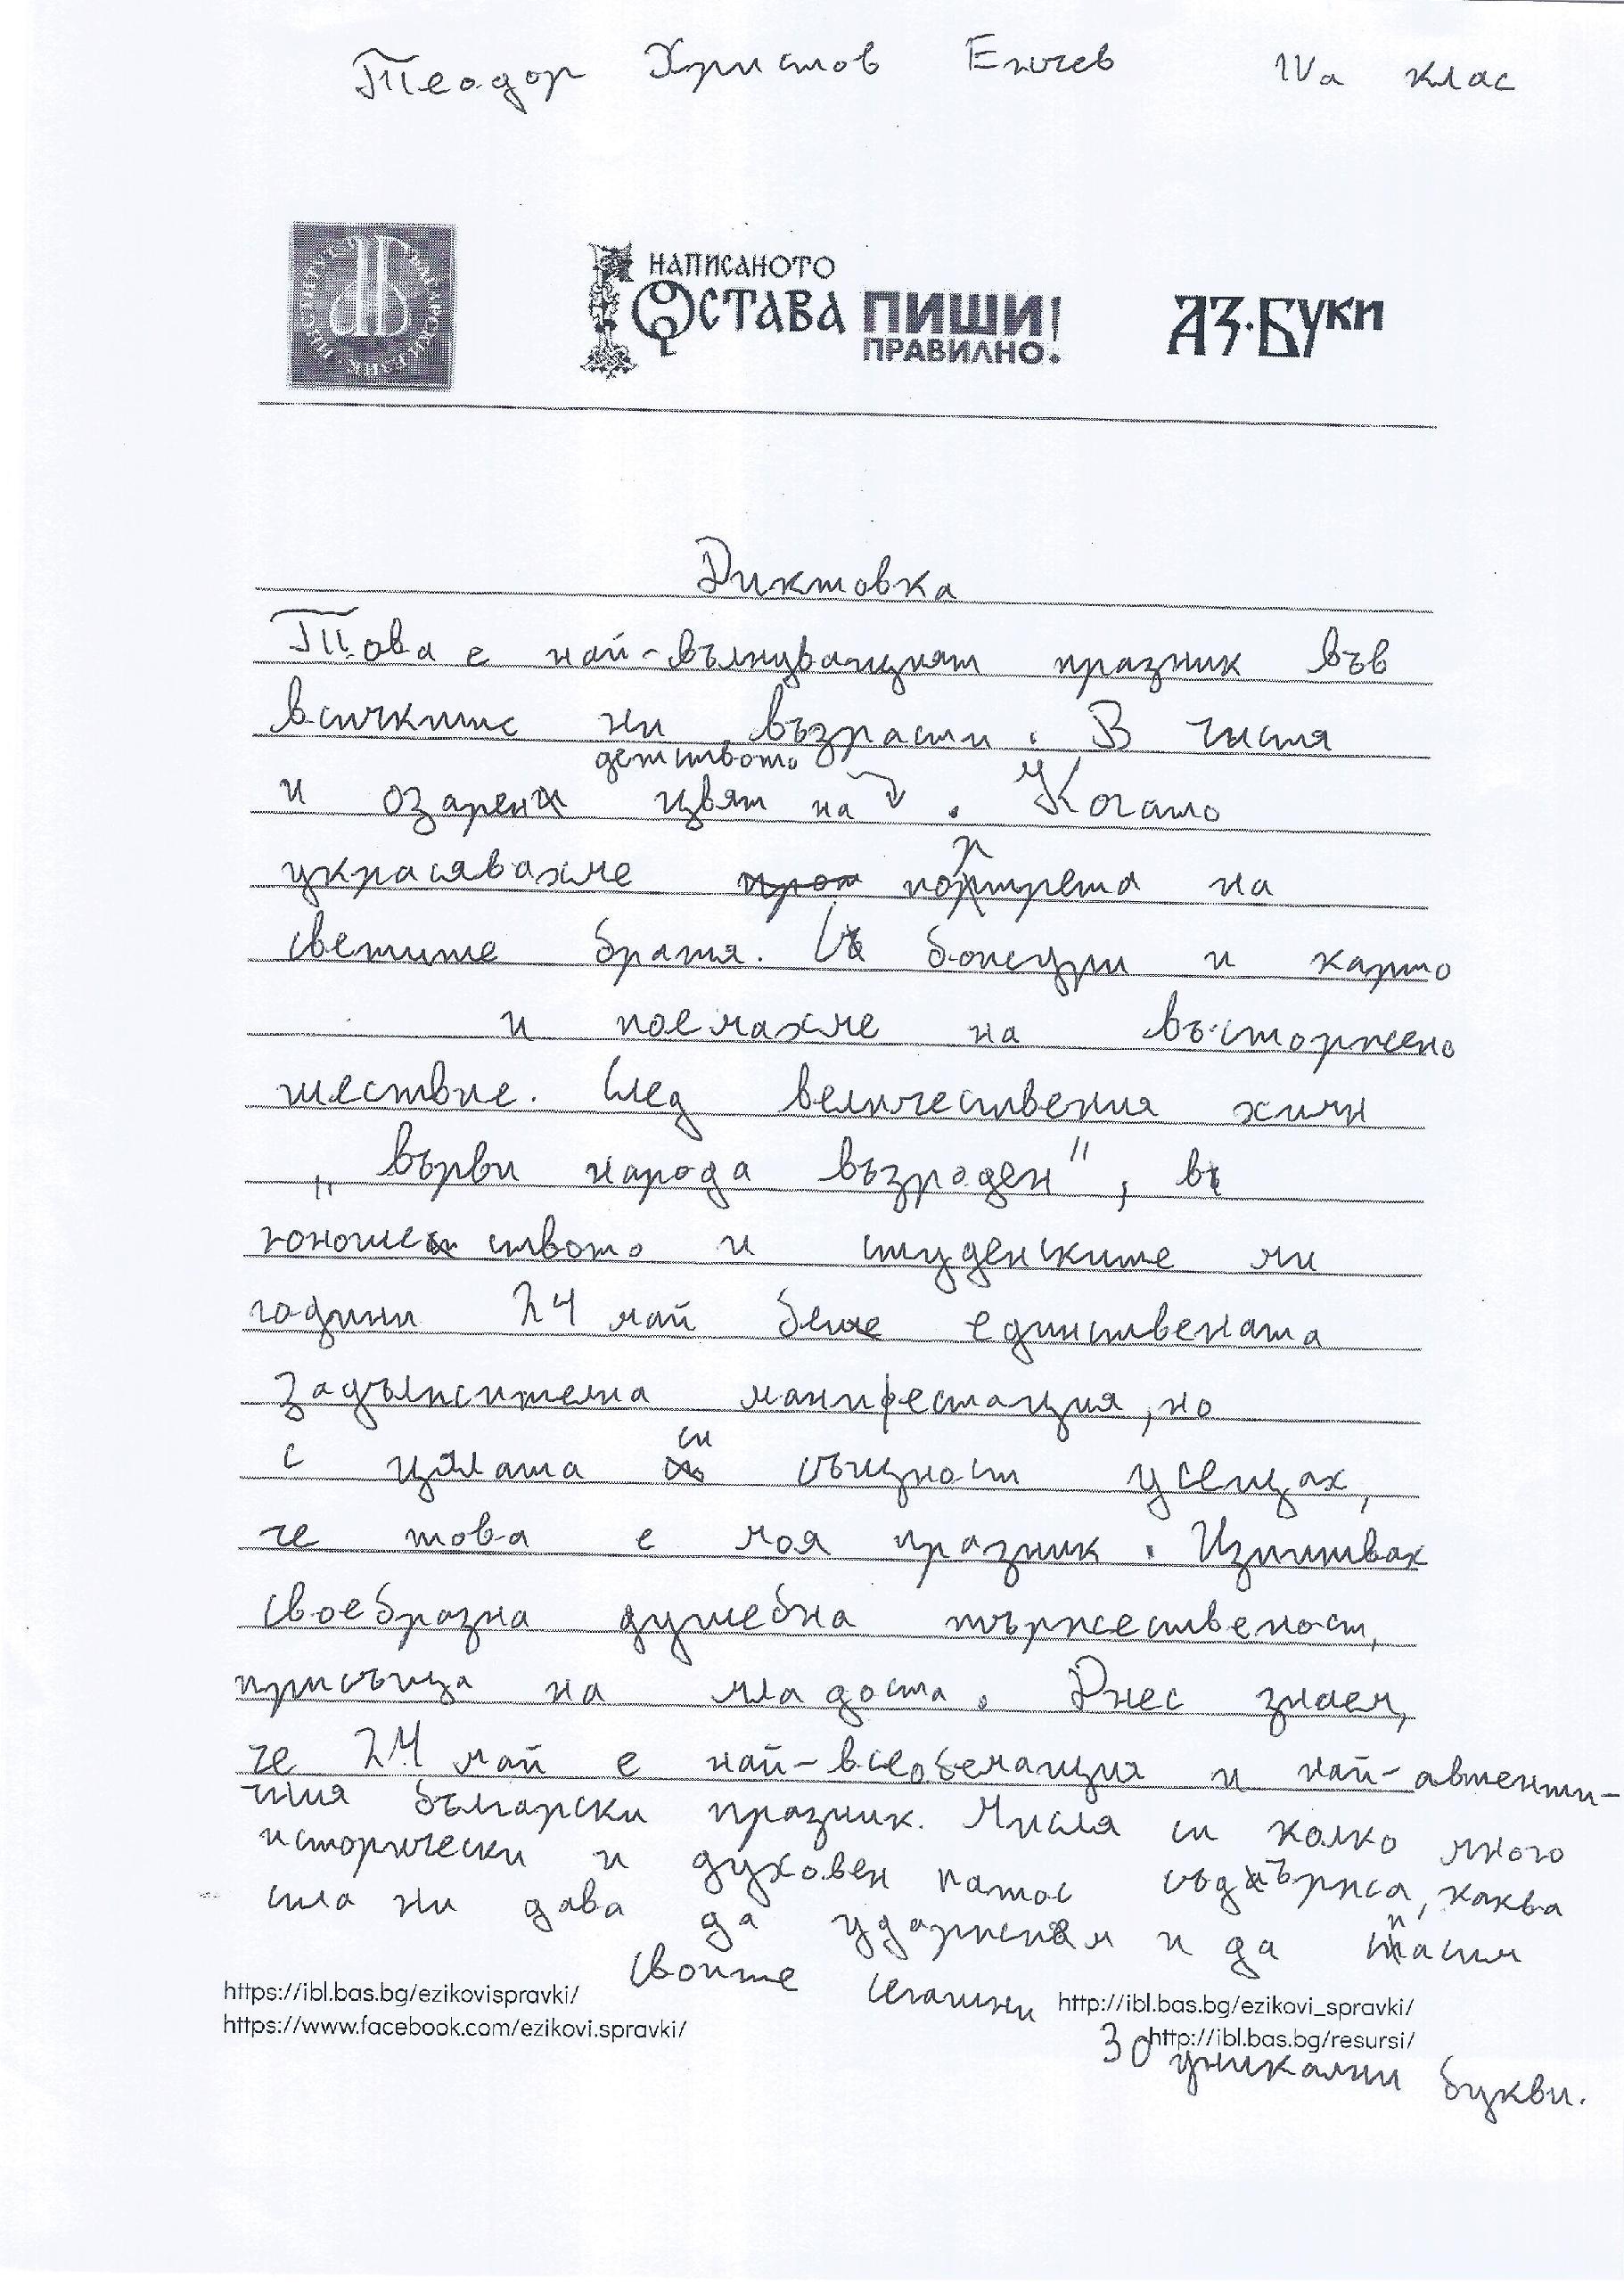 Теодор Христов Енчев IVa клас
НАПИСАНОТО
ОСТАВА ПИШИ!
ПРАВИЛНО.
АЗ·БУКИ
Диктовка
Това е най-вълнуващият празник във
всичките ни възрасти. В чистя
и озарен цвят на детството. Когато
украсявахме портрета на
светите братя. С божури и карто
и поемахме на въсторжено
шествие. След величествения химн
„върви народа възроден", в
юношеството и студенските ми
години 24 май беше единствената
задължителна манифестация, но
с цялата си същност усещах,
че това е моя празник. Изпитвах
своебразна душебна тържественост,
присъща на младоста. Днес знаем,
че 24 май е най-всеобемащия и най-автенти-
чния български празник. Мисля си колко много
исторически и духовен патос съдържа, каква
сила ни дава да ударжиям и да пасим
своите сегашни
30 уникални букви.
https://ibl.bas.bg/ezikovispravki/
https://www.facebook.com/ezikovi.spravki/
http://ibl.bas.bg/ezikovi_spravki/
http://ibl.bas.bg/resursi/